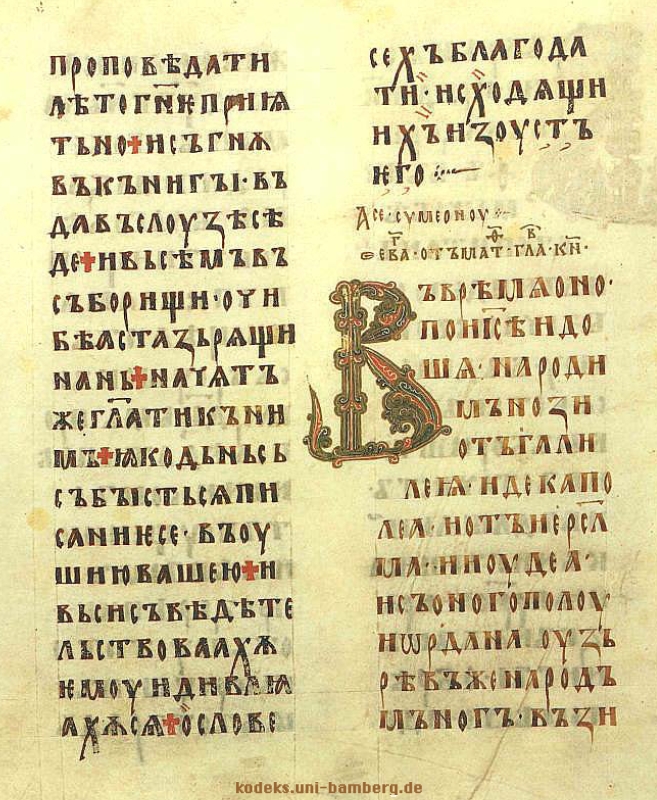 проповѣдати
лѣтогн҃ѥприꙗ
тьно+исъгнѫ
въкънигꙑ·въ
давъслоуꙁѣсѣ
де+ивьсѣмъвъ
съборищи·очи
бѣастаꙁьрѧщи
нань+начѧтъ
жегл҃атикъни
мъ+ꙗкодьньсь
събꙑстьсѧпи
саниѥсе·въоу
шиювашею+и
вьсисъвѣдѣте
льствоваахѫ
ѥмоуидивлꙗ
ахѫсѧ+ослове
сехъблагода
ти·исходѧщи
ихъиꙁоустъ
ѥго
Асе·сумеоноу
отъмат·гла·к҃и·
Въврѣмѧоно·
поис҃ѣидо
шѧ·народи
мъноꙁи
отъгали
леѩ·идекапо
леа·иотъиерс҃л
ма·ииоудеа·
исъоногополоу
иѡрдана·оуꙁь
рѣвъженародъ
мъногъ·въꙁи
kodeks.uni-bamberg.de